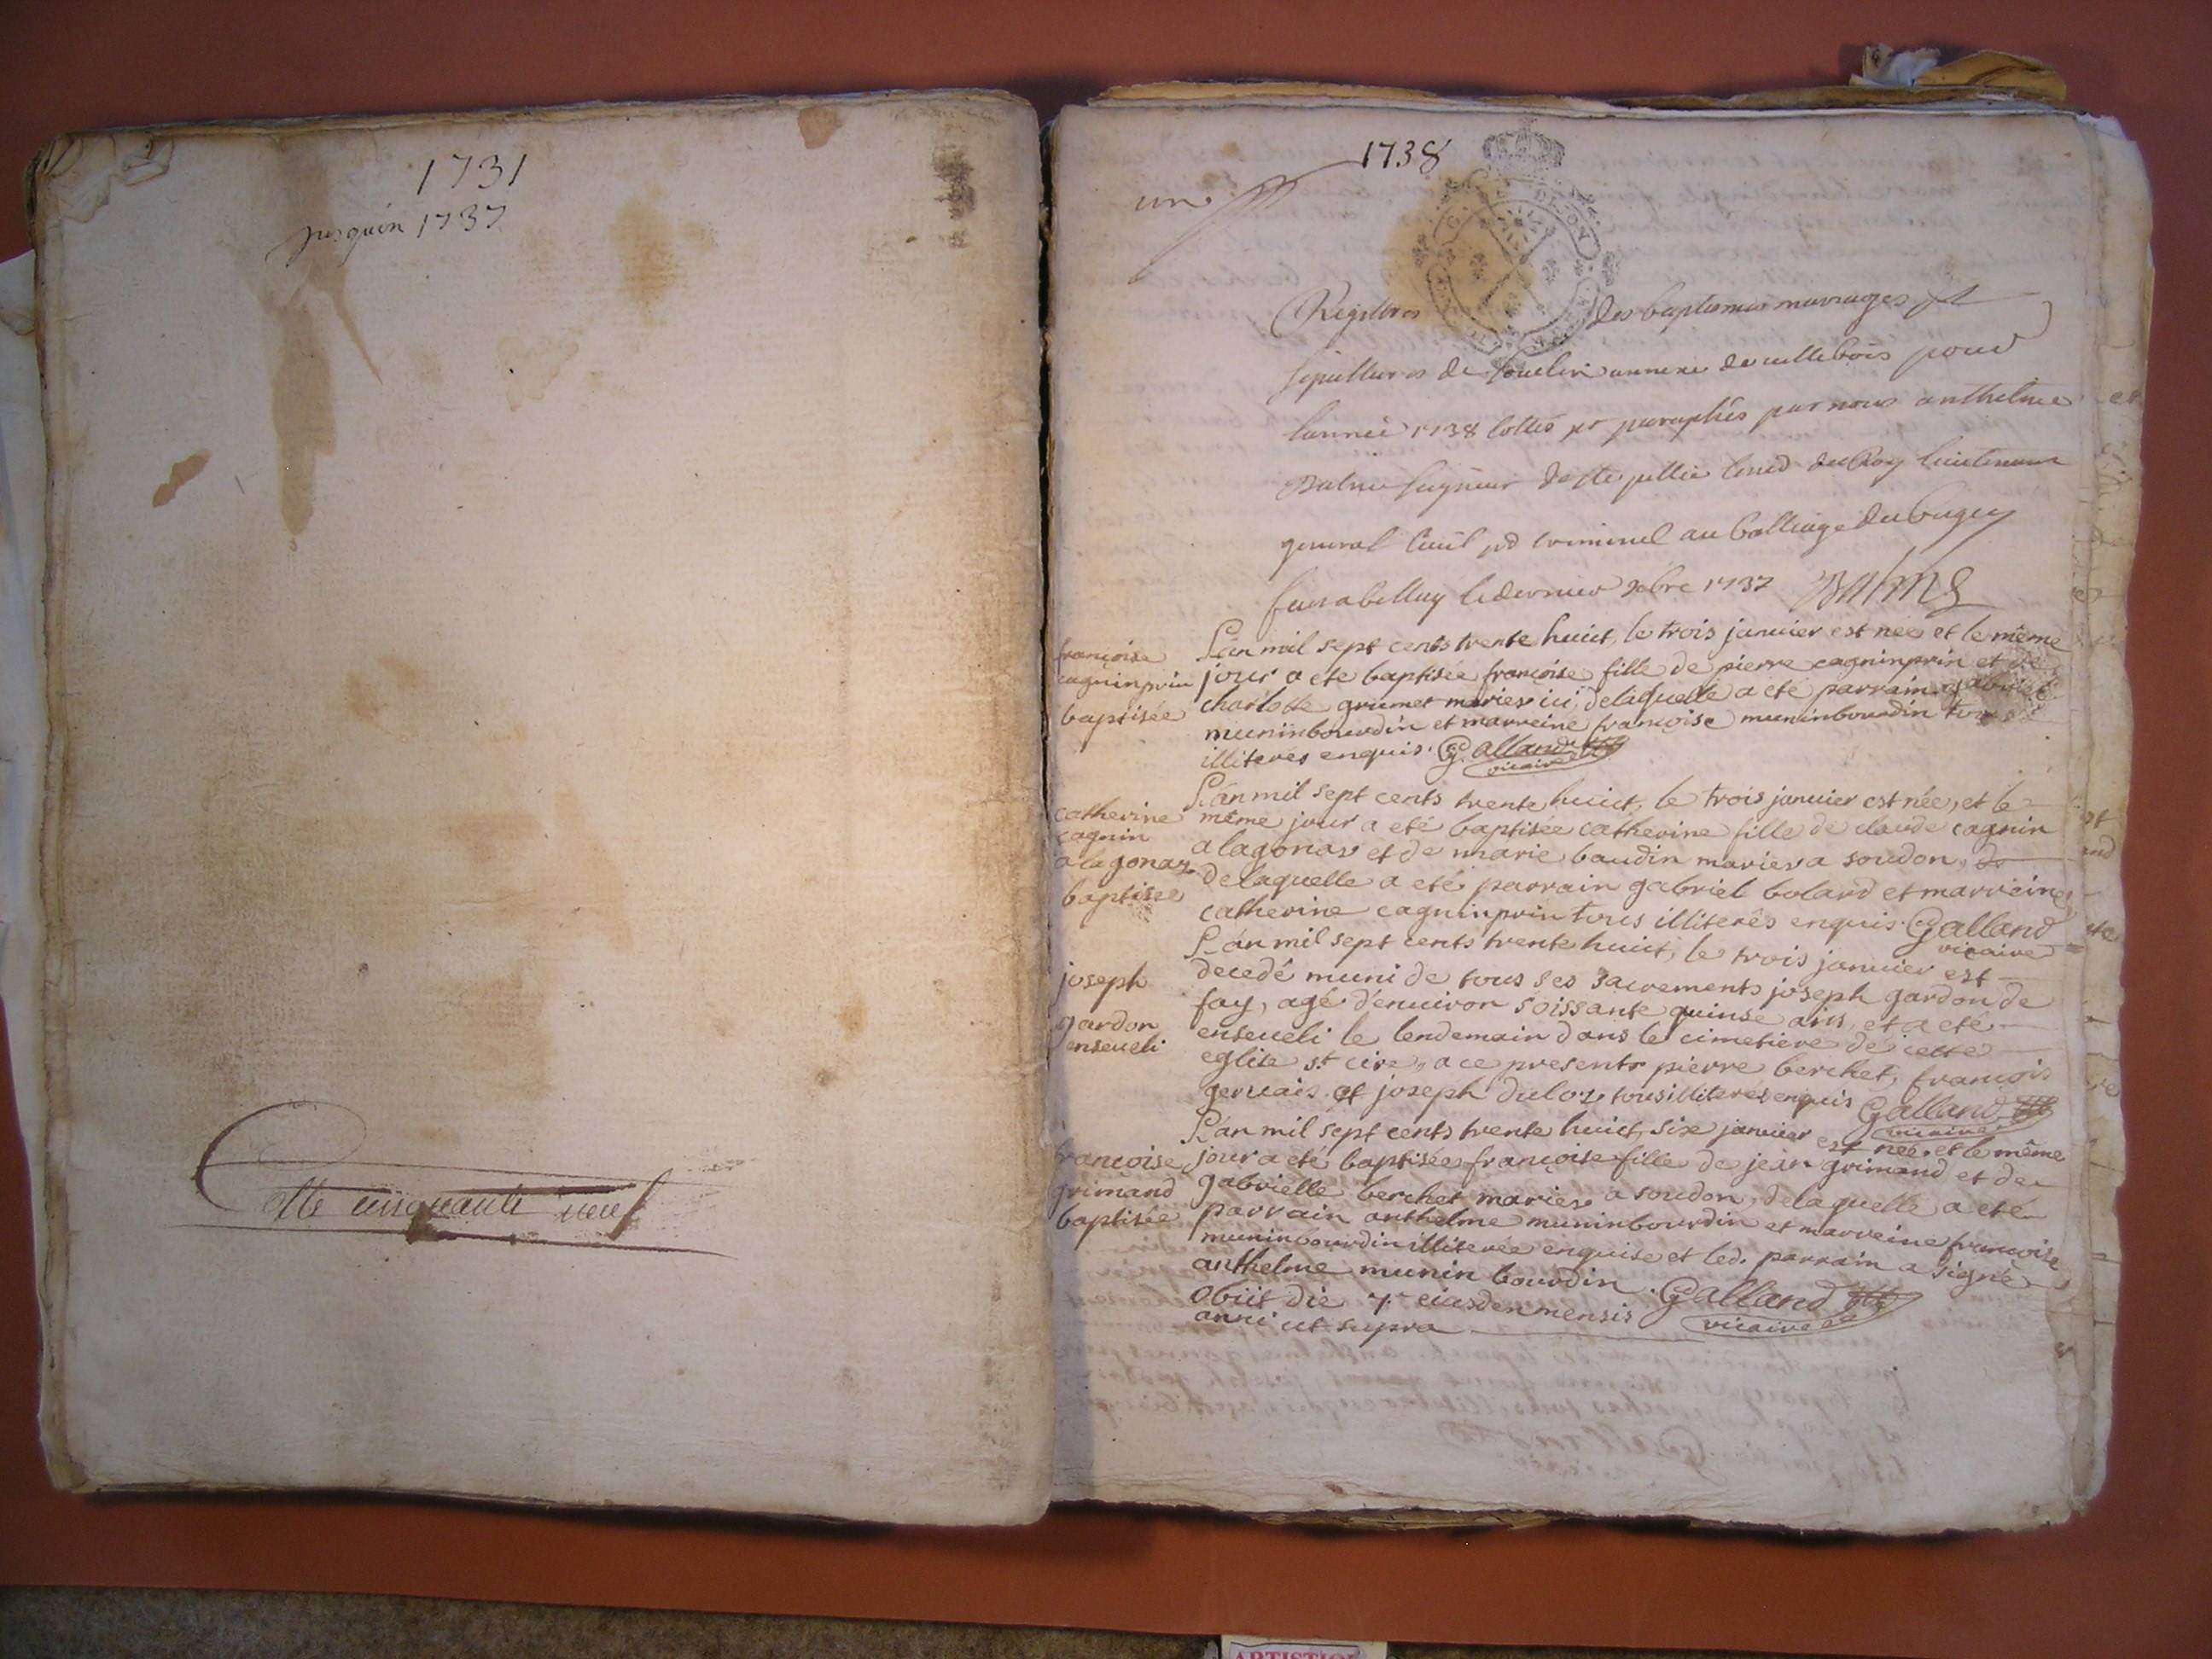 1731
jusquén 1737
Cotte cinquante neuf
1738
un
Registres des baptemes mariages et
sepultures de Souclin annexe de villebois pour
lannée 1738 cottés et paraphés par nous anthelme
Balme seigneur de ste jullie Coner du Roy lieutenant
general Civil et criminel au balliage du bugey
fait a belley le dernier xbre 1737 Balme
francoise
cagninprin
baptisée
L'an mil sept cents trente huict, le trois januier est née et le même
jour a eté baptisée francoise fille de pierre cagninprin et de
charlotte grumet mariés ici, delaquelle a eté parrain gabriel
muninbourdin et marreine francoise muninbourdin tous
illiterés enquis. Galland
vicaire
catherine
cagnin
alagonas
baptisée
L'an mil sept cents trente huict, le trois januier est née, et le
même jour a eté baptisée catherine fille de claude cagnin
alagonas et de marie baudin mariés a soudon, de
delaquelle a eté parrain gabriel bolard et marreine
catherine cagninprin tous illiterés enquis. Galland
vicaire
joseph
gardon
enseueli
L'an mil sept cents trente huict, le trois januier est
decedé muni de tous ses sacrements joseph gardon de
fay, agé d'enuiron soissante quinse ans, et a eté
enseueli le lendemain dans le cimetiere de cette
eglise st cire, a ce presents pierre berchet, francois
geruais et joseph duloz tous illiterés enquis Galland
vicaire
francoise
grimand
baptisée
L'an mil sept cents trente huict, six januier est née, et le même
jour a eté baptisée francoise fille de jean grimand et de
gabrielle berchet mariés a soudon, delaquelle a eté
parrain anthelme muninbourdin et marreine francoise
muninbourdin illiterée enquise et led. parrain a signé
anthelme munin bourdin. Galland
vicaire
obiit die 7a eiusdem mensis
anni ut supra